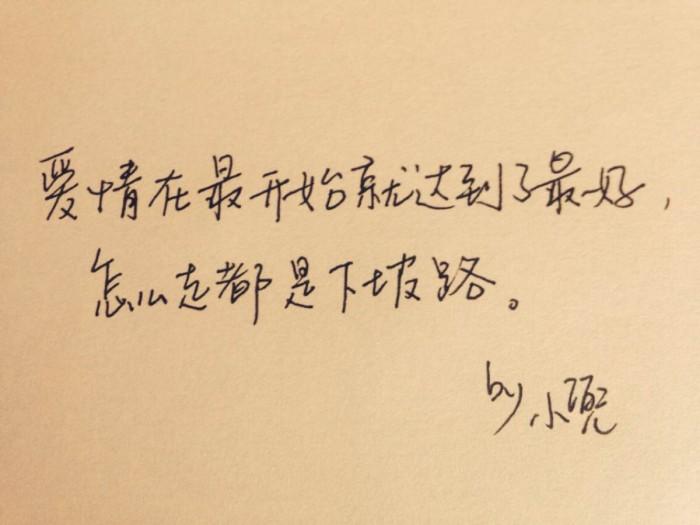 爱情在最开始就达到了最好，
怎么走都是下坡路。
by 小兜